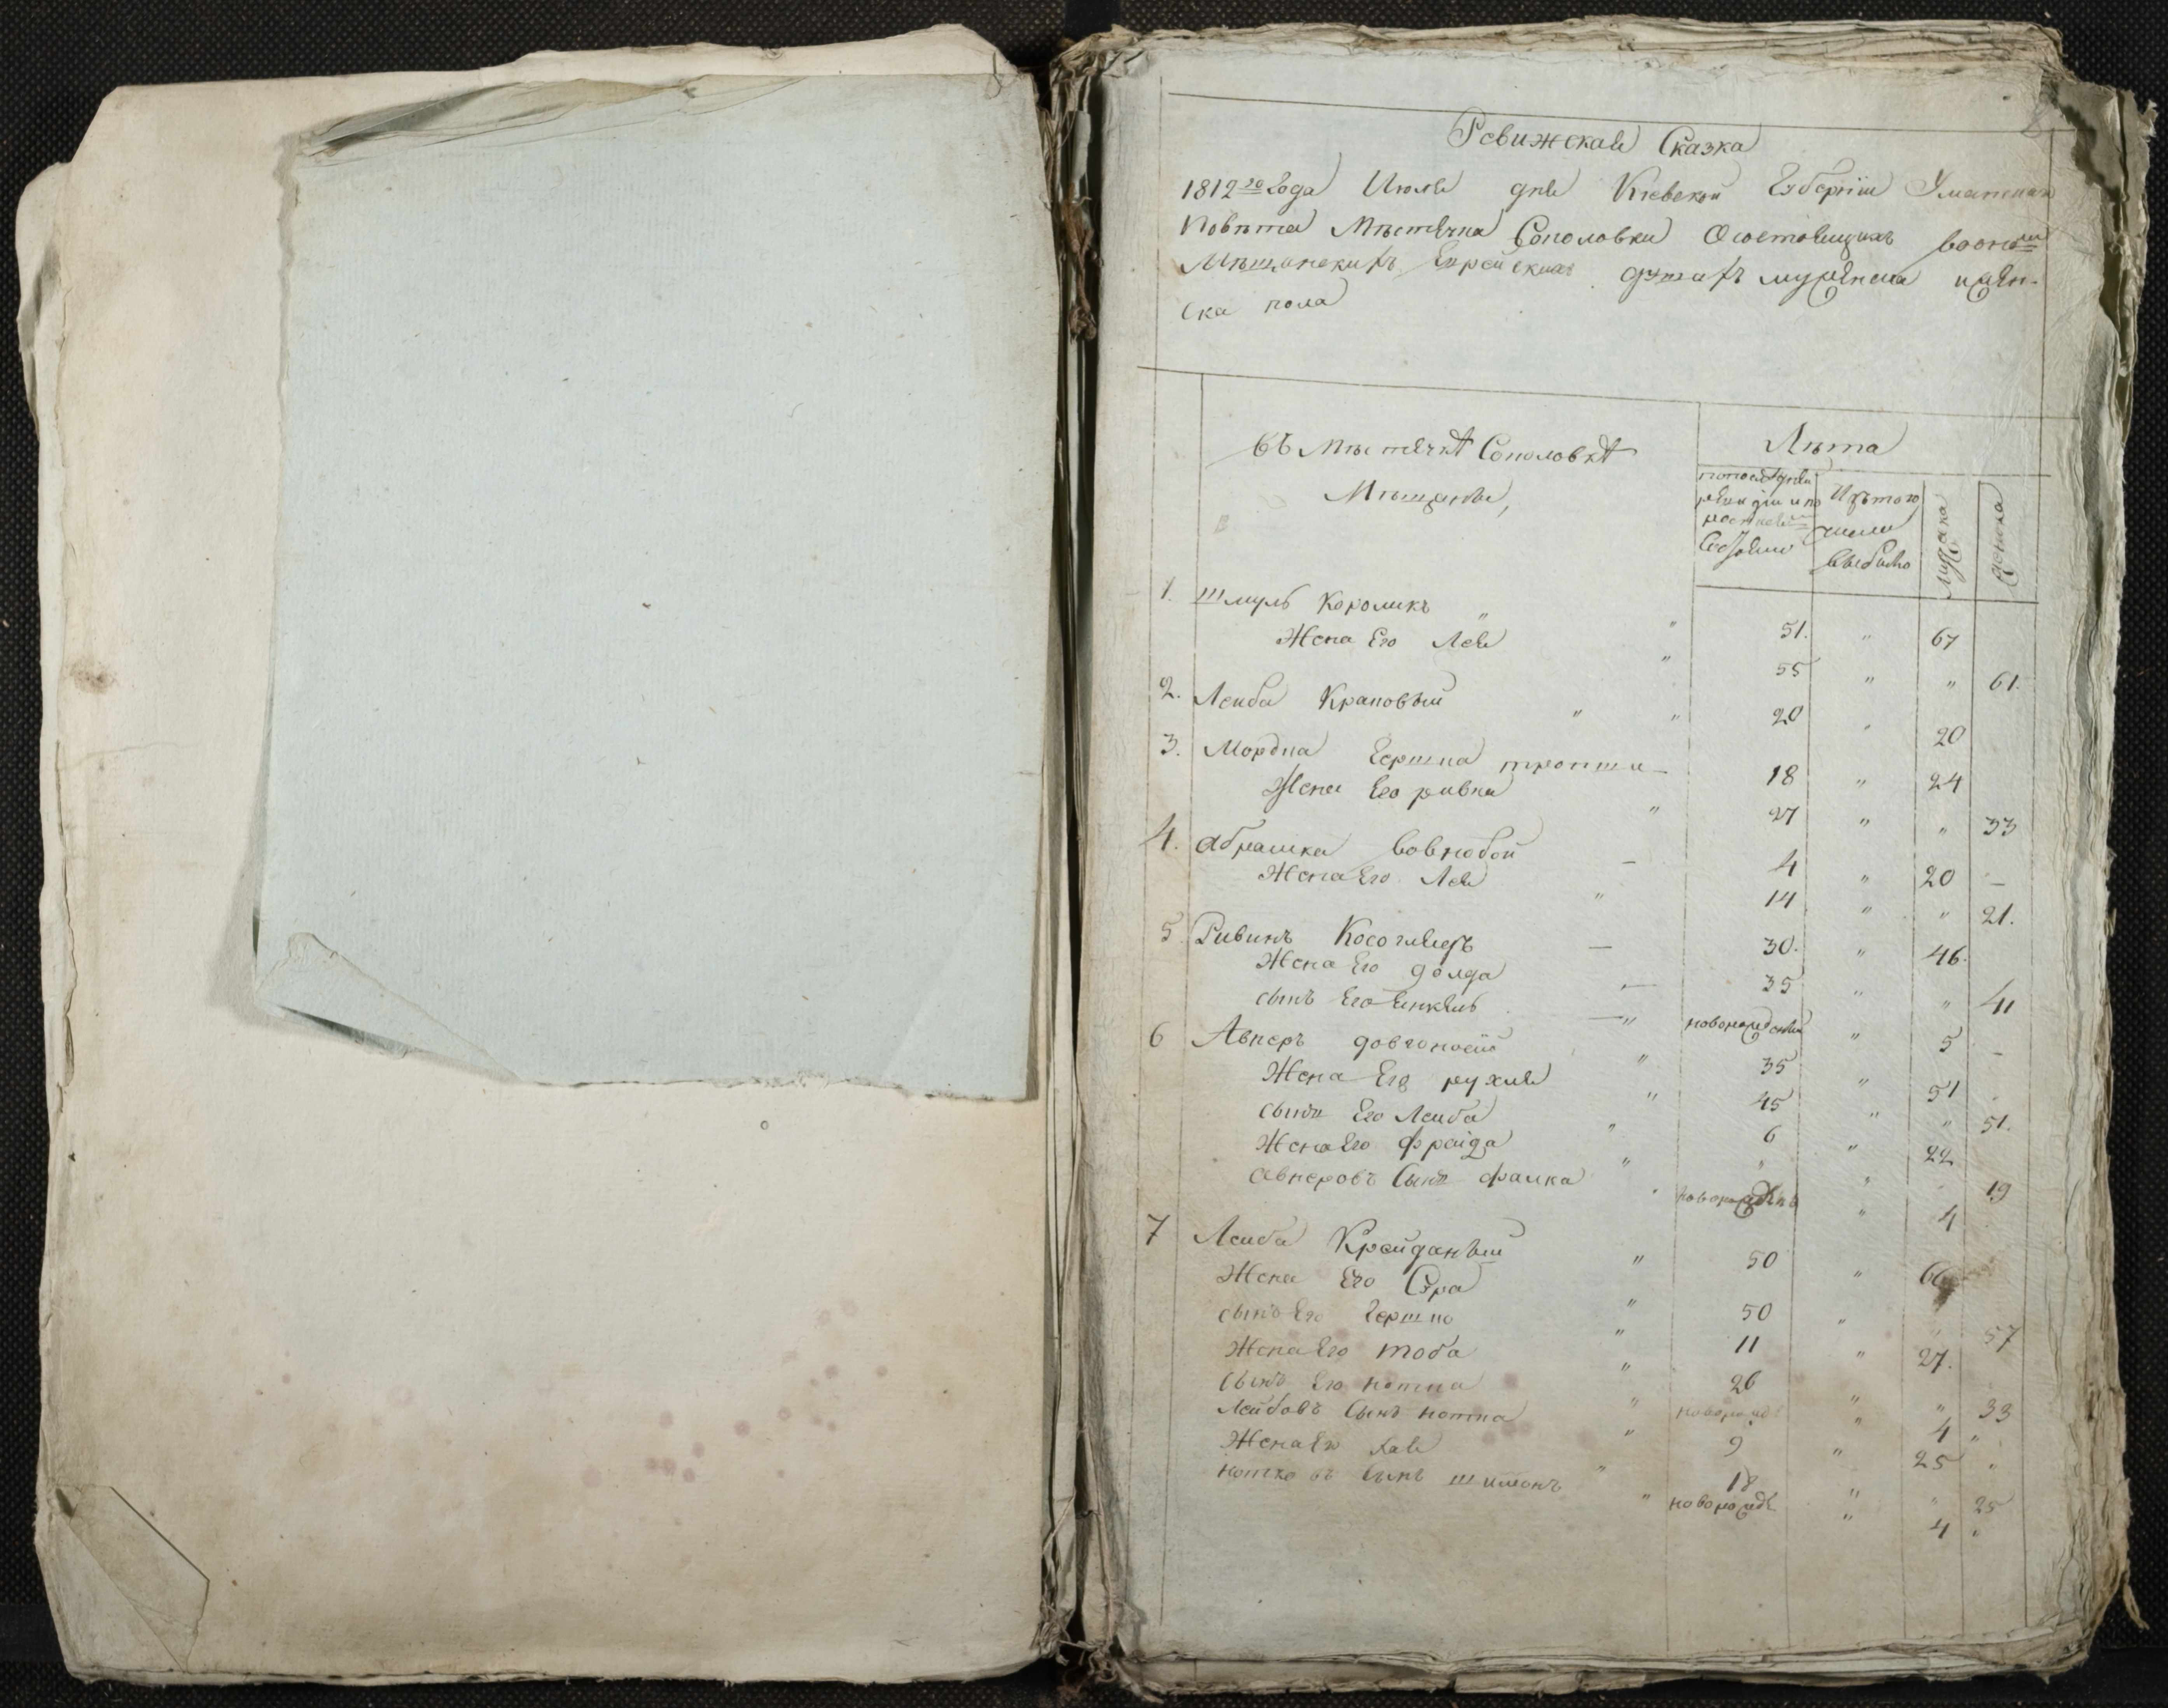 8
Ревижская Сказка
1812го года Июля дня Киевской Губернiи Уманскаго
Повѣта Мѣстечка Соколовки О состоящихъ во оной
Мѣщанскихъ Еврейскихъ душахъ мужеска и жен-
ска пола
Въ Мѣстечкѣ Соколовкѣ
Мѣщане,
Лѣта
по последней ревизiи и по
Изъ того числа выбыло
мужска
женска
1. Шмуль Короликъ " " 51. " 67
Жена Его Лея " 55 " " 61.
2. Леиба Краповый " " 20 " 20
3. Мордка Гершка 18 " 24
Жена Его ривка " 27 " " 33
4. Абрашка Вовкобой — 4 " 20 —
Жена Его Лея " 14 " " 21.
5 Ривинъ — 30. " 46.
Жена Его голда — 35 " " 41
сынъ Его Енкель — " новорожденый " 5 —
6 Авнеръ довгоносiй " 35 " 51
Жена Его рухля " 45 " " 51.
сынъ Его Леиба " 6 " 22
Жена Его фрайда " " " 19
Авнеровъ Сынъ фалка новорожденъ " 4
7 Леиба Крейданый " 50 " 66
Жена Его Сура " 50 " " 57
сынъ Его Гершко " 11 " 27.
Жена Его тоба " 26 " " 33
сынъ Его нотка " новорожд " 4 "
Лейбовъ Сынъ нотка " 9 " 25
Жена Его хая " 18 " " 25
нотковъ Сынъ шимонъ " новорождъ " 4 "